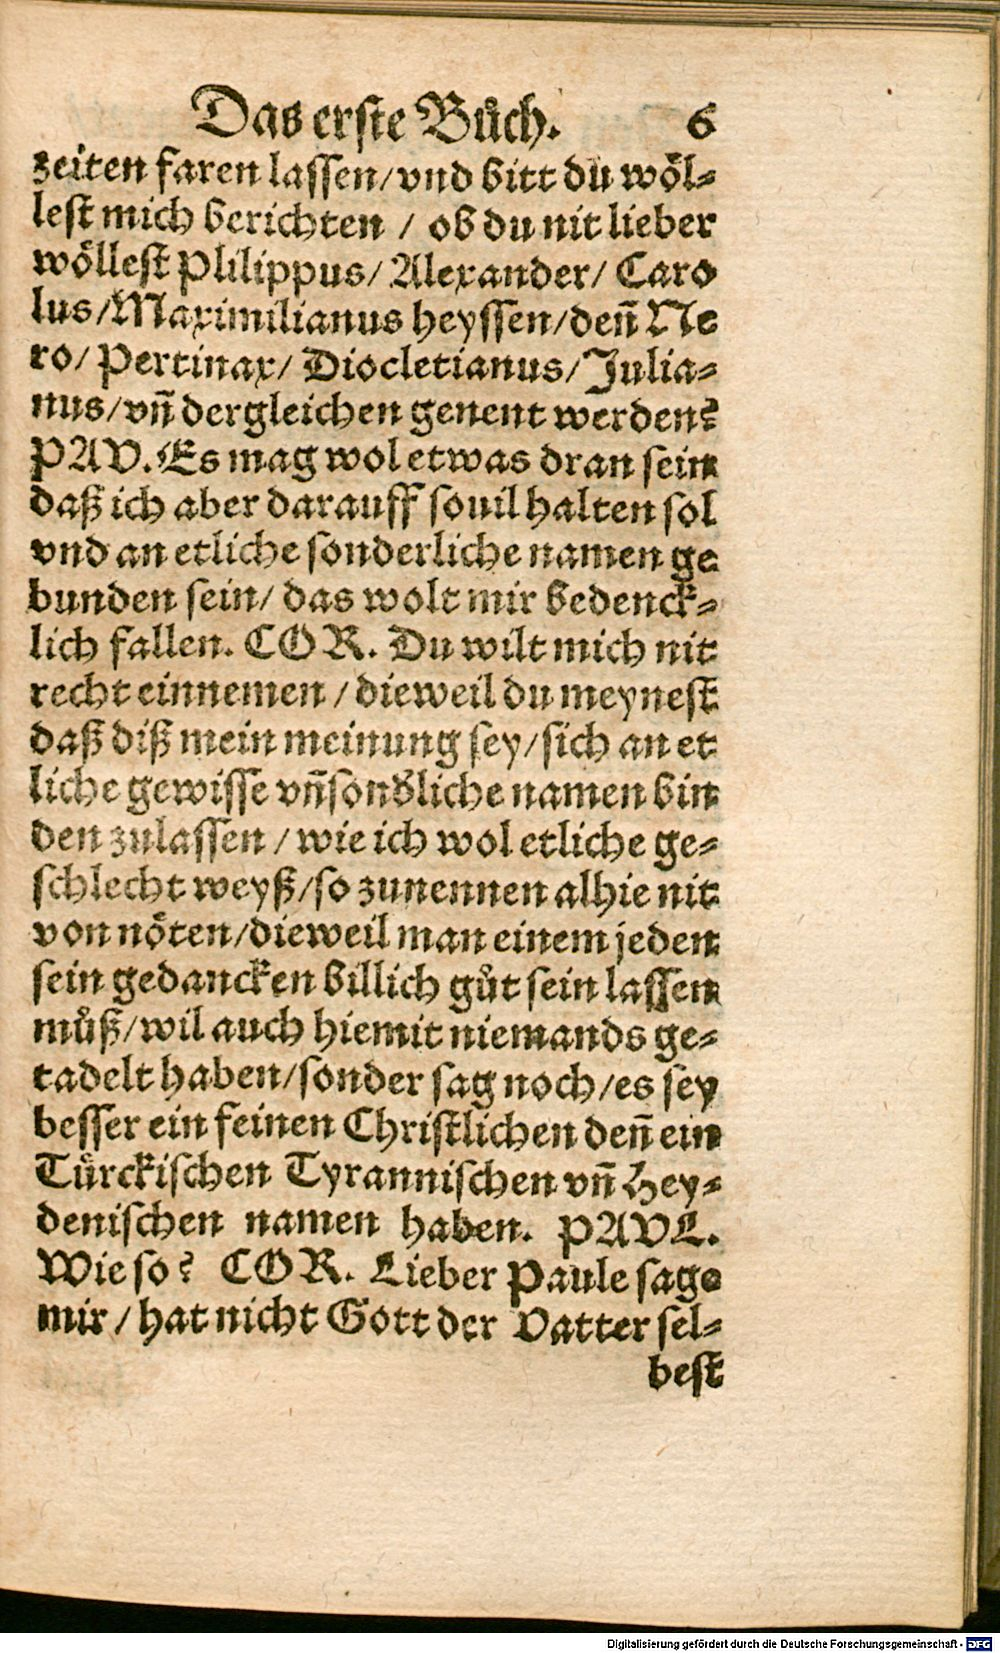 Das erste Bůch. 6
zeiten faren lassen/vnd bitt du wöl-
lest mich berichten / ob du nit lieber
wöllest Plilippus/ Alexander/ Caro
lus/Maximilianus heyssen/deñ Ne
ro/ Pertinax/ Diocletianus/Julia-
nus/vñ dergleichen genent werden?
PAV. Es mag wol etwas dran sein
daß ich aber darauff souil halten sol
vnd an etliche sonderliche namen ge
bunden sein/ das wolt mir bedenck-
lich fallen. COR. Du wilt mich nit
recht einnemen / dieweil du meynest
daß diß mein meinung sey/sich an et
liche gewisse vñ sonďliche namen bin
den zulassen / wie ich wol etliche ge-
schlecht weyß/so zunennen alhie nit
von nöten/dieweil man einem jeden
sein gedancken billich gůt sein lassen
můß/wil auch hiemit niemands ge-
tadelt haben/sonder sag noch/es sey
besser ein feinen Christlichen deñ ein
Türckischen Tyrannischen vñ Hey-
denischen namen haben. PAVL.
Wie so? COR. Lieber Paule sage
mir / hat nicht Gott der Vatter sel-
best
Digitalisierung gefördert durch die Deutsche Forschungsgemeinschaft - DFG